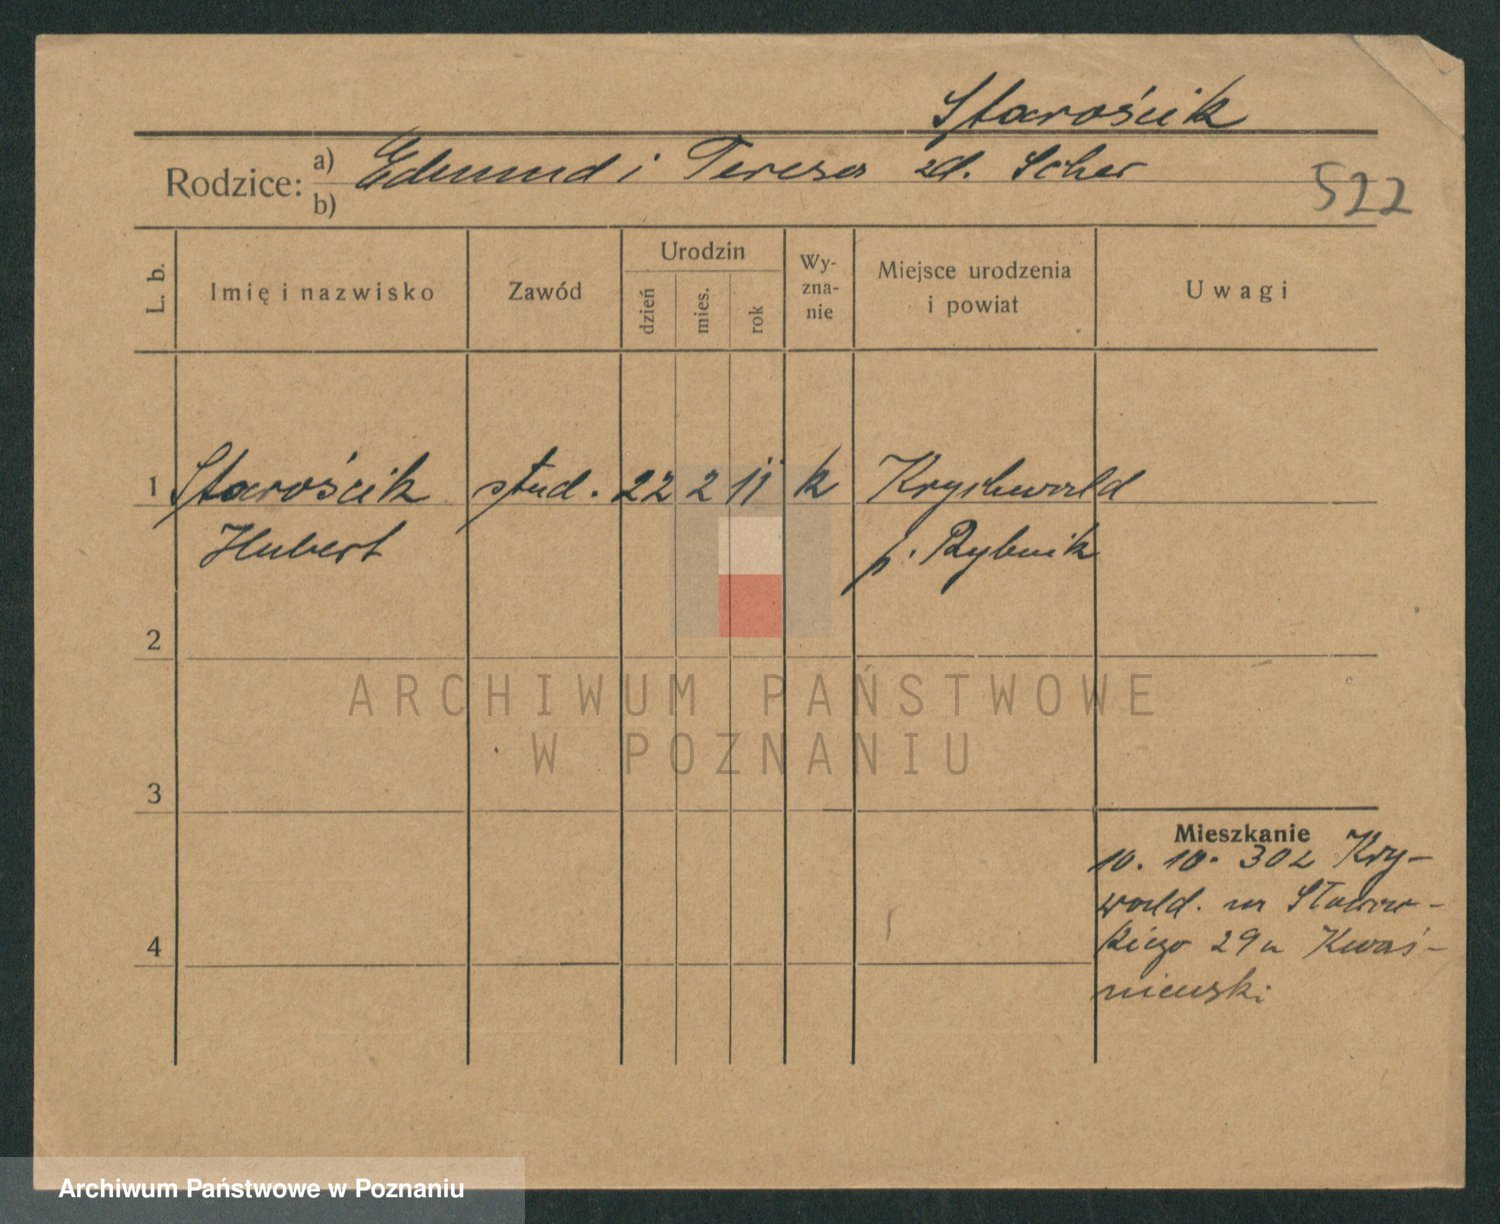 Starościk
Rodzice: a) Edmund i Teresa zd. Scher
b)
522
L. b. Imię i nazwisko Zawód Urodzin dzień mies. rok Wy-zna-nie Miejsce urodzenia i powiat Uwagi
1 Starościk stud. 22 2 11 k Kryschwald
Hubert p. Rybnik
2
3
Mieszkanie
10. 10. 30 z Kry-
wald. na Słowac-
4 kiego 29 u Kwaś-
niewski
ARCHIWUM PAŃSTWOWE
W POZNANIU
Archiwum Państwowe w Poznaniu